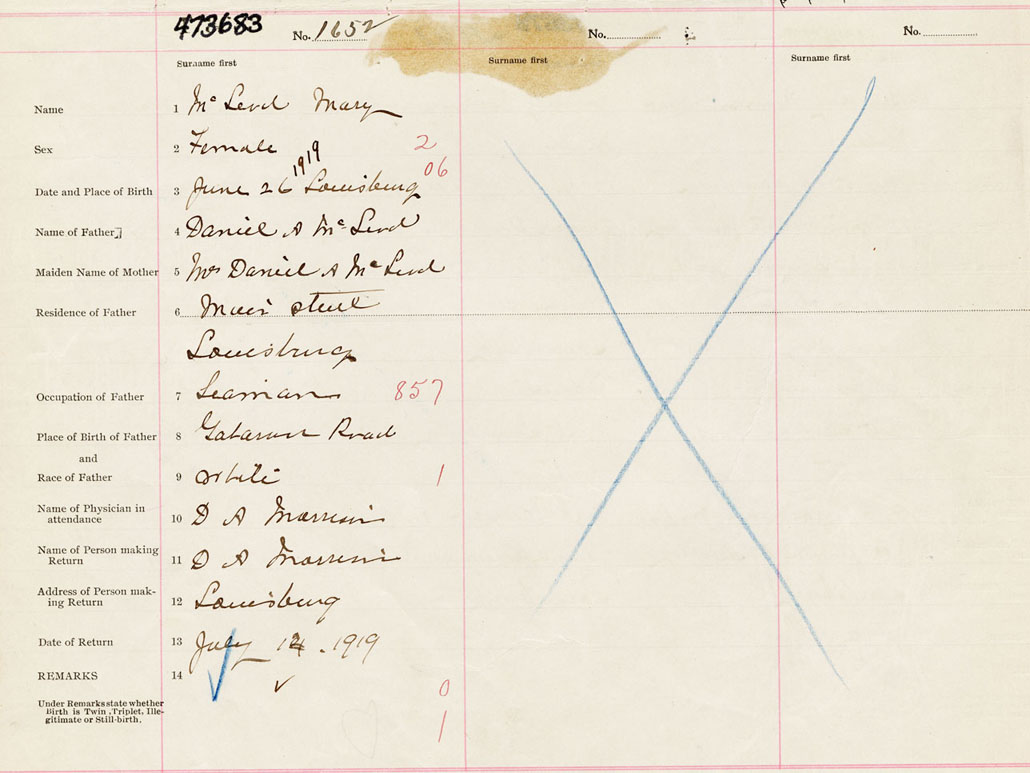 473683
No. 1652 No. No.
Surname first Surname first Surname first
Name 1 Mc Leod Mary
Sex 2 Female 2
06
Date and Place of Birth 3 June 26 1919 Louisburg
Name of Father 4 Daniel A Mc Leod
Maiden Name of Mother 5 Mrs Daniel A Mc Leod
Residence of Father 6 Main street
Louisburg
Occupation of Father 7 Seaman 857
Place of Birth of Father 8 Gabarus Road
and
Race of Father 9 White 1
Name of Physician in
attendance 10 D A Morrison
Name of Person making
Return 11 D A Morrison
Address of Person mak-
ing Return 12 Louisburg
Date of Return 13 July 14. 1919
REMARKS 14
0
Under Remarks state whether
Birth is Twin, Triplet, Ille-
gitimate or Still-birth. 1